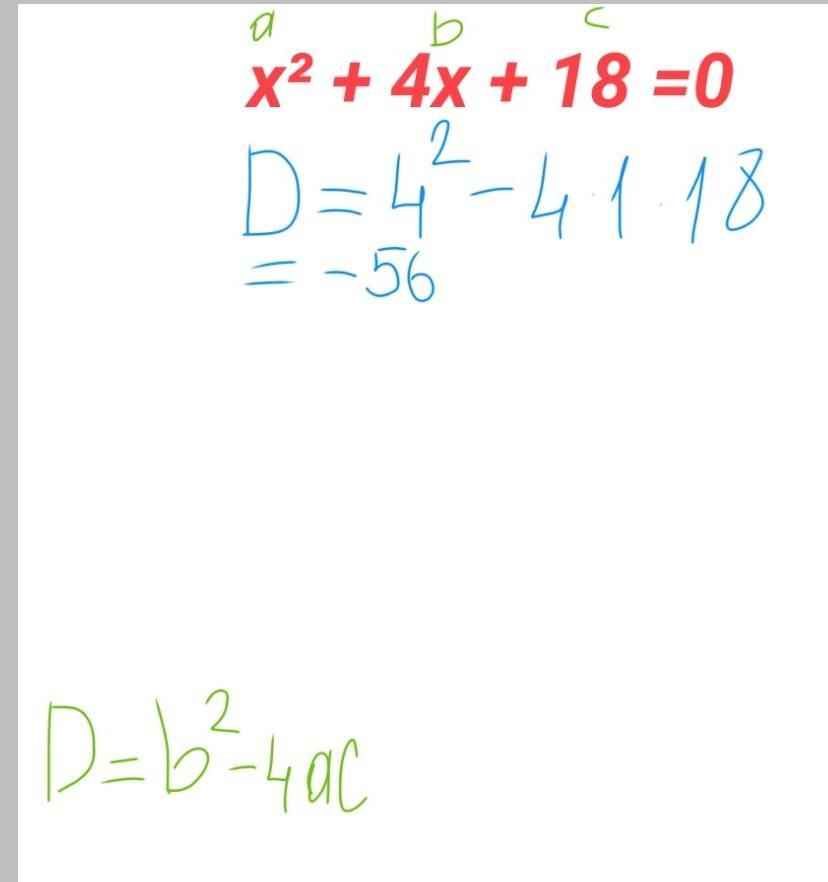 a b c
x² + 4x + 18 =0
D = 4² - 4·1·18
= -56
D = b² - 4ac